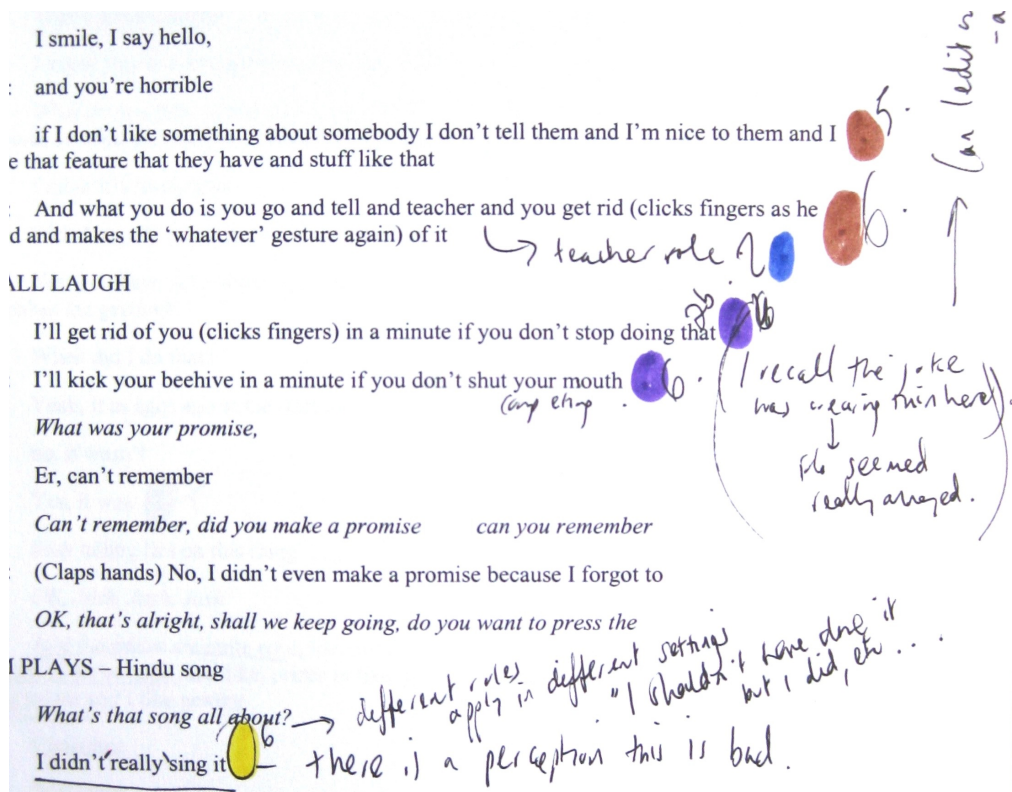 I smile, I say hello,
: and you're horrible
if I don't like something about somebody I don't tell them and I'm nice to them and I 5.
e that feature that they have and stuff like that
: And what you do is you go and tell and teacher and you get rid (clicks fingers as he 6.
d and makes the 'whatever' gesture again) of it
teacher role
ALL LAUGH
I'll get rid of you (clicks fingers) in a minute if you don't stop doing that
: I'll kick your beehive in a minute if you don't shut your mouth 6.
competing.
(I recall the joke
was wearing thin here).
seemed
really annoyed.
What was your promise,
Er, can't remember
Can't remember, did you make a promise can you remember
: (Claps hands) No, I didn't even make a promise because I forgot to
OK, that's alright, shall we keep going, do you want to press the
I PLAYS – Hindu song
What's that song all about?
different rules
apply in different settings
. "I shouldn't have done it
but I did, etc...
I didn't really sing it 6
– there is a perception this is bad.
Can